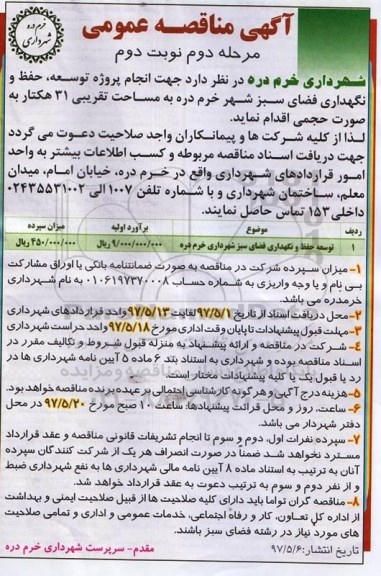 آگهی مناقصه عمومی
مرحله دوم نوبت دوم
خرم دره
شهرداری
شهرداری خرم دره در نظر دارد جهت انجام پروژه توسعه، حفظ و
نگهداری فضای سبز شهر خرم دره به مساحت تقریبی ۳۱ هکتار به
صورت حجمی اقدام نماید.
لذا از کلیه شرکت ها و پیمانکاران واجد صلاحیت دعوت می گردد
جهت دریافت اسناد مناقصه مربوطه و کسب اطلاعات بیشتر به واحد
امور قراردادهای شهرداری واقع در خرم دره، خیابان امام، میدان
معلم، ساختمان شهرداری و با شماره تلفن ۱۰۰۷ الی ۰۲۴۳۵۵۳۱۰۰۲
داخلی ۱۵۳ تماس حاصل نمایند.
ردیف موضوع برآورد اولیه میزان سپرده
۱ توسعه حفظ و نگهداری فضای سبز شهرداری خرم دره ۹/۰۰۰/۰۰۰/۰۰۰ ریال ۴۵۰/۰۰۰/۰۰۰ ریال
۱- میزان سپرده شرکت در مناقصه به صورت ضمانتنامه بانکی یا اوراق مشارکت
بی نام و یا وجه واریزی به شماره حساب ۰۱۰۶۱۹۷۳۷۰۰۰۸ به نام شهرداری
خرمدره می باشد.
۲-محل دریافت اسناد از تاریخ ۹۷/۵/۱ لغایت ۹۷/۵/۱۳ واحد قراردادهای شهرداری
۳-مهلت قبول پیشنهادات تا پایان وقت اداری مورخ ۹۷/۵/۱۸ واحد حراست شهرداری
۴- شرکت در مناقصه و ارائه پیشنهاد به منزله قبول شروط و تکالیف مقرر در
اسناد مناقصه بوده و شهرداری به استناد بند ۶ ماده ۵ آیین نامه شهرداری ها در
رد یا قبول یک یا کلیه پیشنهادات مختار است.
۵-هزینه درج آگهی و هرگونه کارشناسی احتمالی بر عهده برنده مناقصه خواهد بود.
۶- ساعت، روز و محل قرائت پیشنهادها: ساعت ۱۰ صبح مورخ ۹۷/۵/۲۰ در محل
دفتر شهردار می باشد.
۷- سپرده نفرات اول، دوم و سوم تا انجام تشریفات قانونی مناقصه و عقد قرارداد
مسترد نخواهد شد ضمناً در صورت انصراف هر یک از شرکت کنندگان سپرده
آنان به ترتیب به استناد ماده ۸ آیین نامه مالی شهرداری ها به نفع شهرداری ضبط
و از نفر دوم و سوم به ترتیب دعوت به عقد قرارداد خواهد شد.
۸- مناقصه گران تواما باید دارای کلیه صلاحیت ها از قبیل صلاحیت ایمنی و بهداشت
از اداره کل تعاون، کار و رفاه اجتماعی، خدمات عمومی و اداری و تمامی صلاحیت
های مورد نیاز در رشته فضای سبز باشند.
تاریخ انتشار: ۹۷/۵/۶
مقدم- سرپرست شهرداری خرم دره